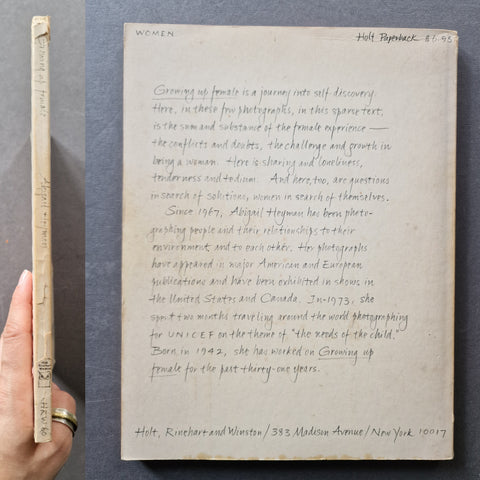 growing up female
Abigail Heyman
HRW
WOMEN
Holt Paperback $6.95
Growing up female is a journey into self discovery.
Here, in these few photographs, in this sparse text,
is the sum and substance of the female experience —
the conflicts and doubts, the challenge and growth in
being a woman. Here is sharing and loneliness,
tenderness and tedium. And here, too, are questions
in search of solutions, women in search of themselves.
Since 1967, Abigail Heyman has been photo-
graphing people and their relationships to their
environment and to each other. Her photographs
have appeared in major American and European
publications and have been exhibited in shows in
the United States and Canada. In 1973, she
spent two months traveling around the world photographing
for UNICEF on the theme of "the needs of the child."
Born in 1942, she has worked on Growing up
female for the past thirty-one years.
Holt, Rinehart and Winston / 383 Madison Avenue / New York 10017